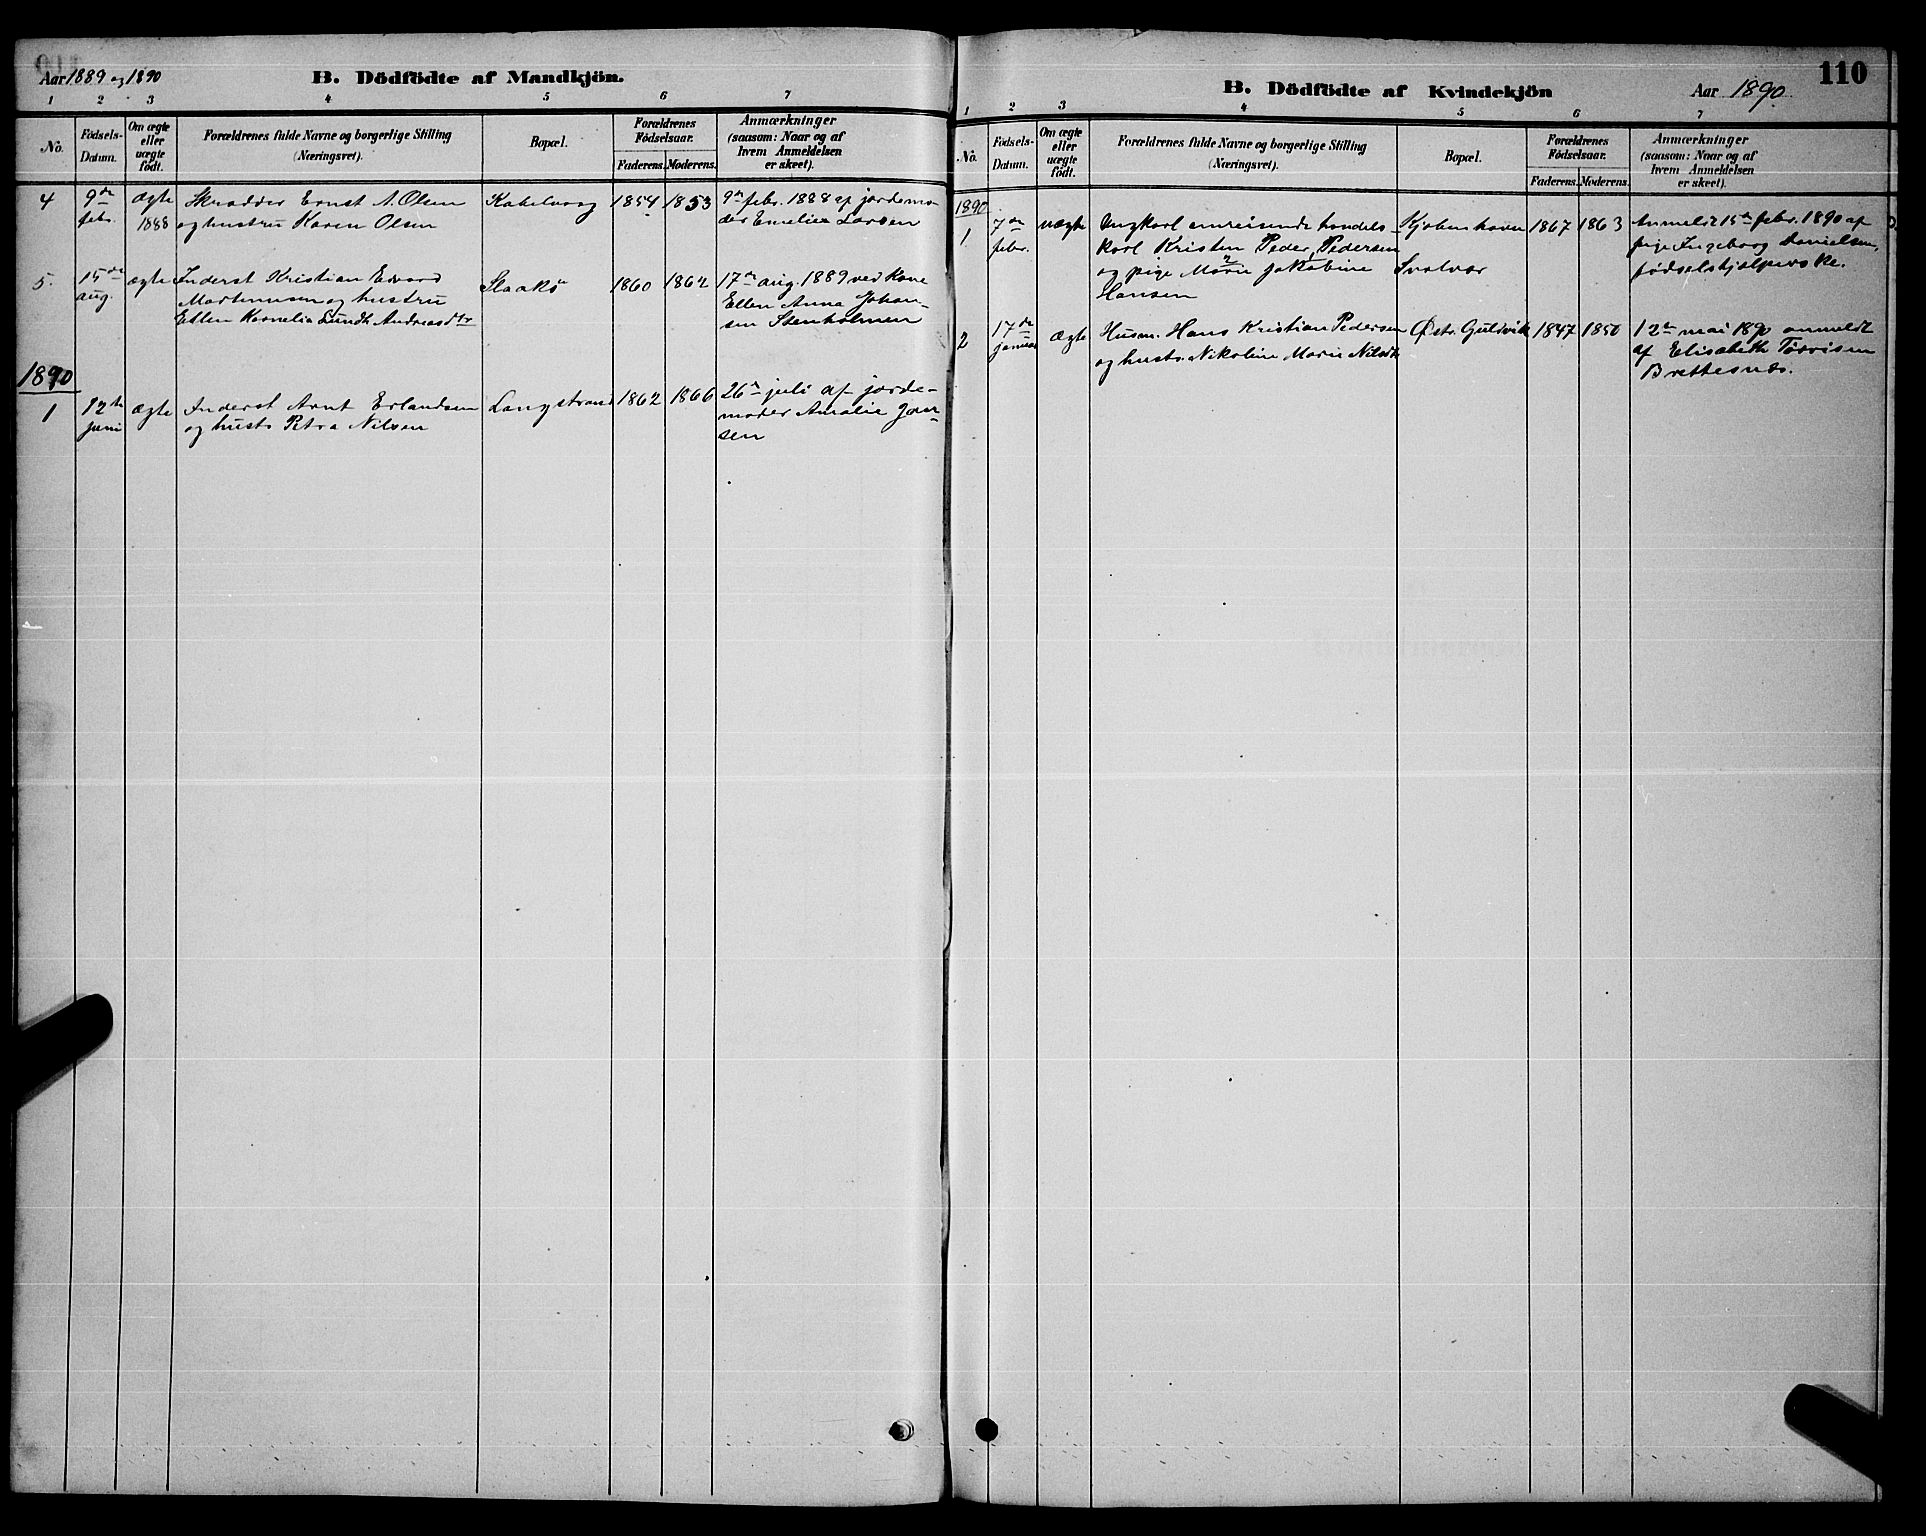 Aar 1889 og 1890
B. Dödfödte af Mandkjön.
1 2 3 4 5 6 7
No.
Födsels-
Datum.
Om ægte
eller
uægte
födt.
Forældrenes fulde Navne og borgerlige Stilling
(Næringsvei).
Bopæl.
Forældrenes
Födselsaar.
Faderens. Moderens.
Anmærkninger
(saasom: Naar og af
hvem Anmeldelsen
er skeet).
4 9de ægte Skrædder Ernst A. Olsen Kabelvaag 1854 1853 9de febr. 1888 af jordemo-
febr. 1888 og hustru Karen Olsen der Emelie Larsen
5. 15de ægte Inderst Kristian Edvard Skaakø 1860 1862 17de aug. 1889 ved kone
aug. Martinusen og hustru Ellen Anna Johan-
Ellen Kornelia Lundt Andreasdtr sen Stenholmen
1890
1 12te ægte Inderst Arnt Erlandsen Langstrand 1862 1866 26de juli af jorde-
juni og hustr. Petra Nilsen moder Amalie Jan-
sen
110
B. Dödfödte af Kvindekjön
Aar 1890.
1 2 3 4 5 6 7
No.
Födsels-
Datum.
Om ægte
eller
uægte
födt.
Forældrenes fulde Navne og borgerlige Stilling
(Næringsvei).
Bopæl.
Forældrenes
Födselsaar.
Faderens. Moderens.
Anmærkninger
(saasom: Naar og af
hvem Anmeldelsen
er skeet).
1890
1 7de uægte Ungkarl omreisende handels- Kjøbenhavn 1867 1863 Anmeldt 15de febr. 1890 af
febr. karl Kristen Peder Pedersen pige Ingeborg Danielsen,
og pige Marie Jakobine Svolvær fødselshjælperske.
Hansen
2 17de ægte Husm. Hans Kristian Pedersen Østr. Guldvik 1847 1850 12te mai 1890 anmeldt
januar og hustr. Nikoline Marie Nilsdtr af Elisabeth
Brettesnæs.